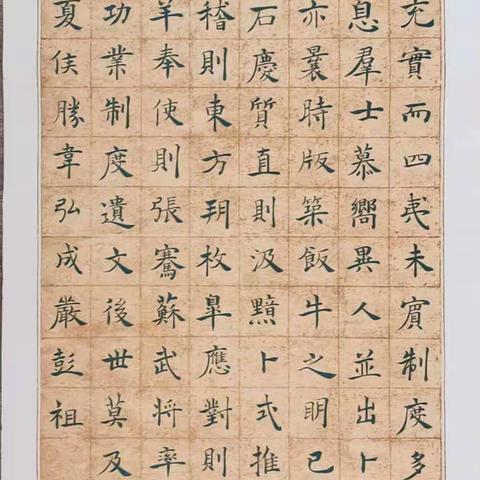 充實而四夷未賓制度多
息羣士慕嚮異人並出卜
亦曩時版築飯牛之朋已
石慶質直則汲黯卜式推
稽則東方朔枚皐應對則
羊奉使則張騫蘇武將率
功業制度遺文後世莫及
夏侯勝韋弘成嚴彭祖